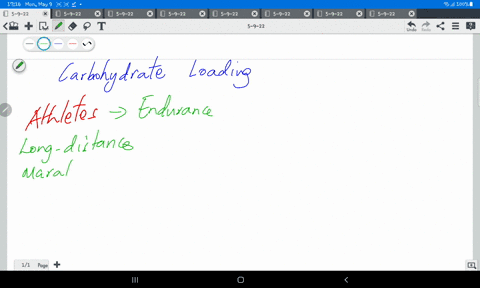 17:16 Mon, May 9 100%
5-9-22 5-9-22 5-9-22 5-9-22 5-9-22 5-9-22 5-9-22 5-9-22
5-9-22
Undo Redo
Carbohydrate Loading
Athletes → Endurance
Long-distance
Maral
1/1 Page